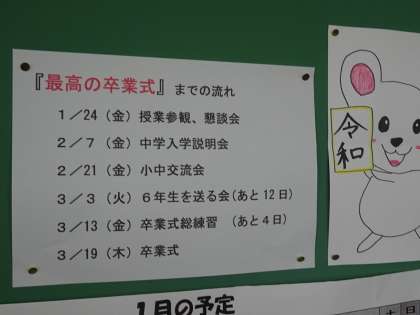 『最高の卒業式』までの流れ
1/24(金)授業参観、懇談会
2/7(金)中学入学説明会
2/21(金)小中交流会
3/3(火)6年生を送る会(あと12日)
3/13(金)卒業式総練習 (あと4日)
3/19(木)卒業式
令和
1月の予定